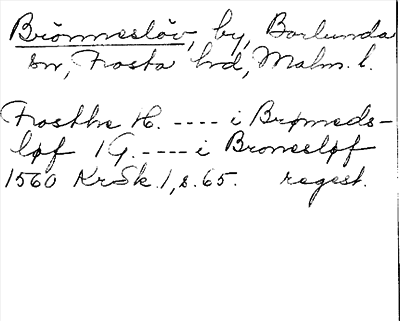 Brönneslöv, by, Borlunda
sn, Frosta hrd, Malm. l.
Frosthe H. ---- i Brømeds-
løf 1 G. ---- i Bronesløf
1560 KrSk. 1, s. 65. regest.